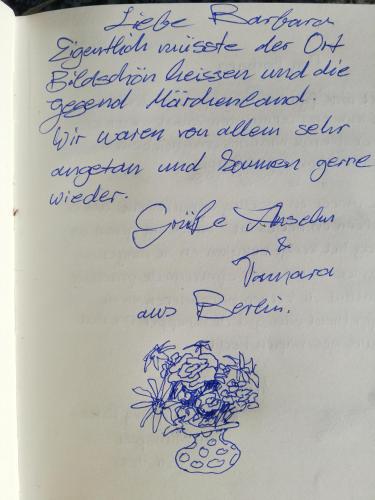 Liebe Barbara
Eigentlich müsste der Ort
Bildschön heissen und die
gegend Märchenland.
Wir waren von allem sehr
angetan und kommen gerne
wieder.
Grüße Anselm
&
Tamara
aus Berlin.